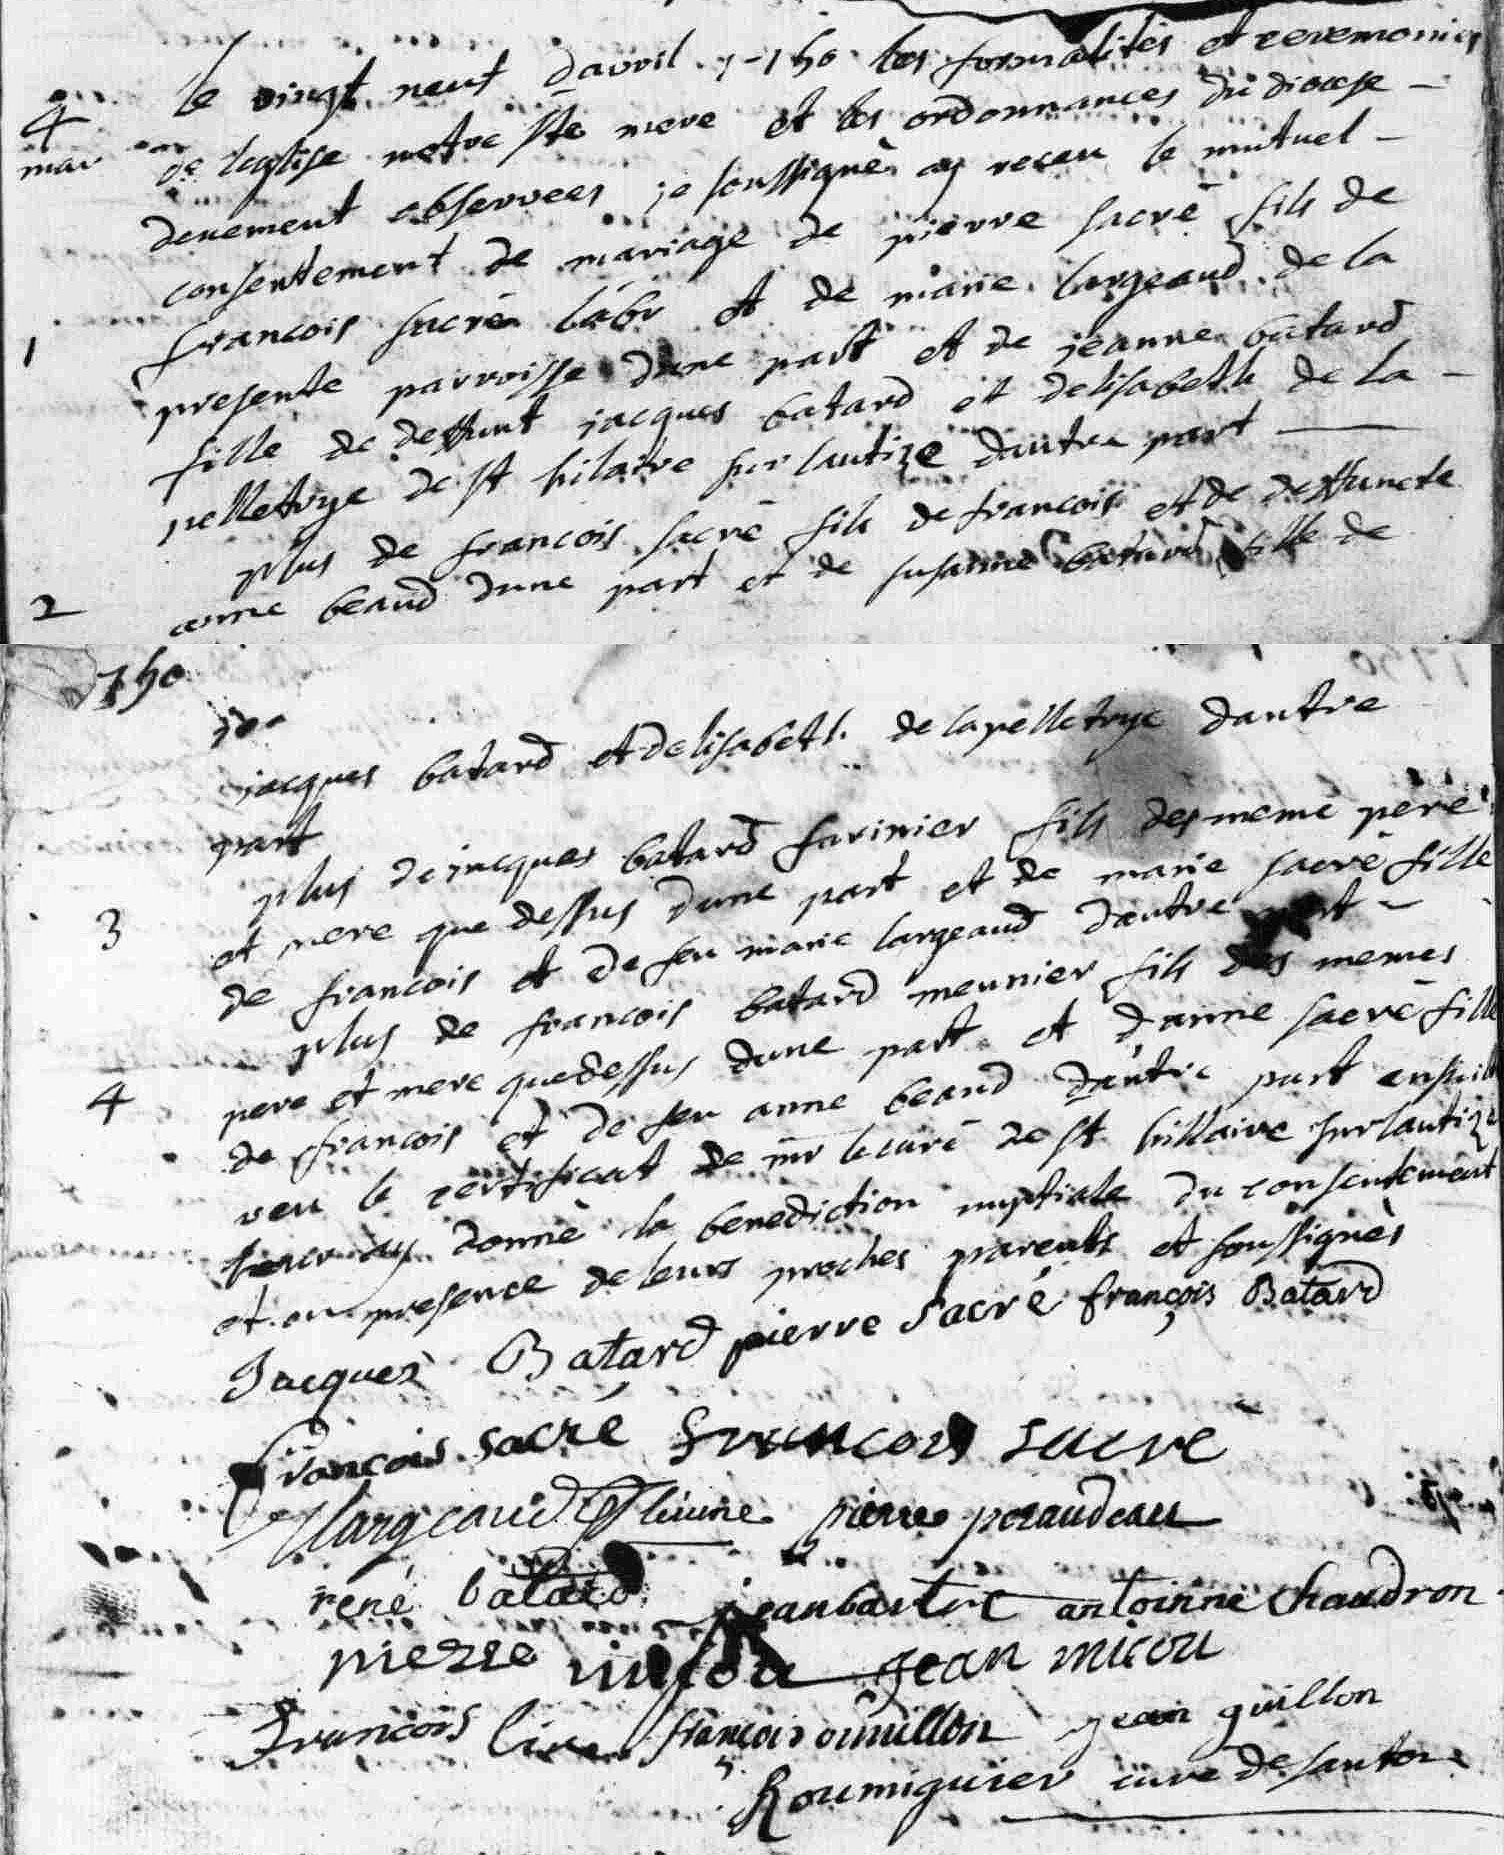 le vingt neuf davril 1750 les formalités et ceremonies
4
mar
de leglise notre ste mere et les ordonnances du diocese
deuement observees je soussigné ay receu le mutuel
consentement de mariage de pierre sacré fils de
1
francois sacré labr et de marie largeaud de la
presente parroisse dune part et de jeanne batard
fille de deffunt jacques batard et delisabeth de la
pelletrye de st hilaire sur lautize dautre part
plus de francois sacré fils de francois et de deffuncte
2
anne beaud dune part et de susanne batard fille de
jacques batard et delisabeth de la pelletrye dautre
part
plus de jacques batard farinier fils des meme pere
3
et mere que dessus dune part et de marie sacré fille
de francois et de feu marie largeaud dautre part
plus de francois batard meunier fils des memes
pere et mere que dessus dune part et danne sacré fille
4
de francois et de feu anne beaud dautre part ensuite
veu le certificat de mr le curé de st hillaire sur lautize
ay donné la benediction nuptiale du consentement
et en presence de leurs proches parents et soussignés
Jacques Batard pierre Sacré françois Batard
François sacré francois sacré
largeaud pierre peraudeau
rené batard antoinne Chaudron
pierre jean micou
francois jean guillon
Roumiguier curé de